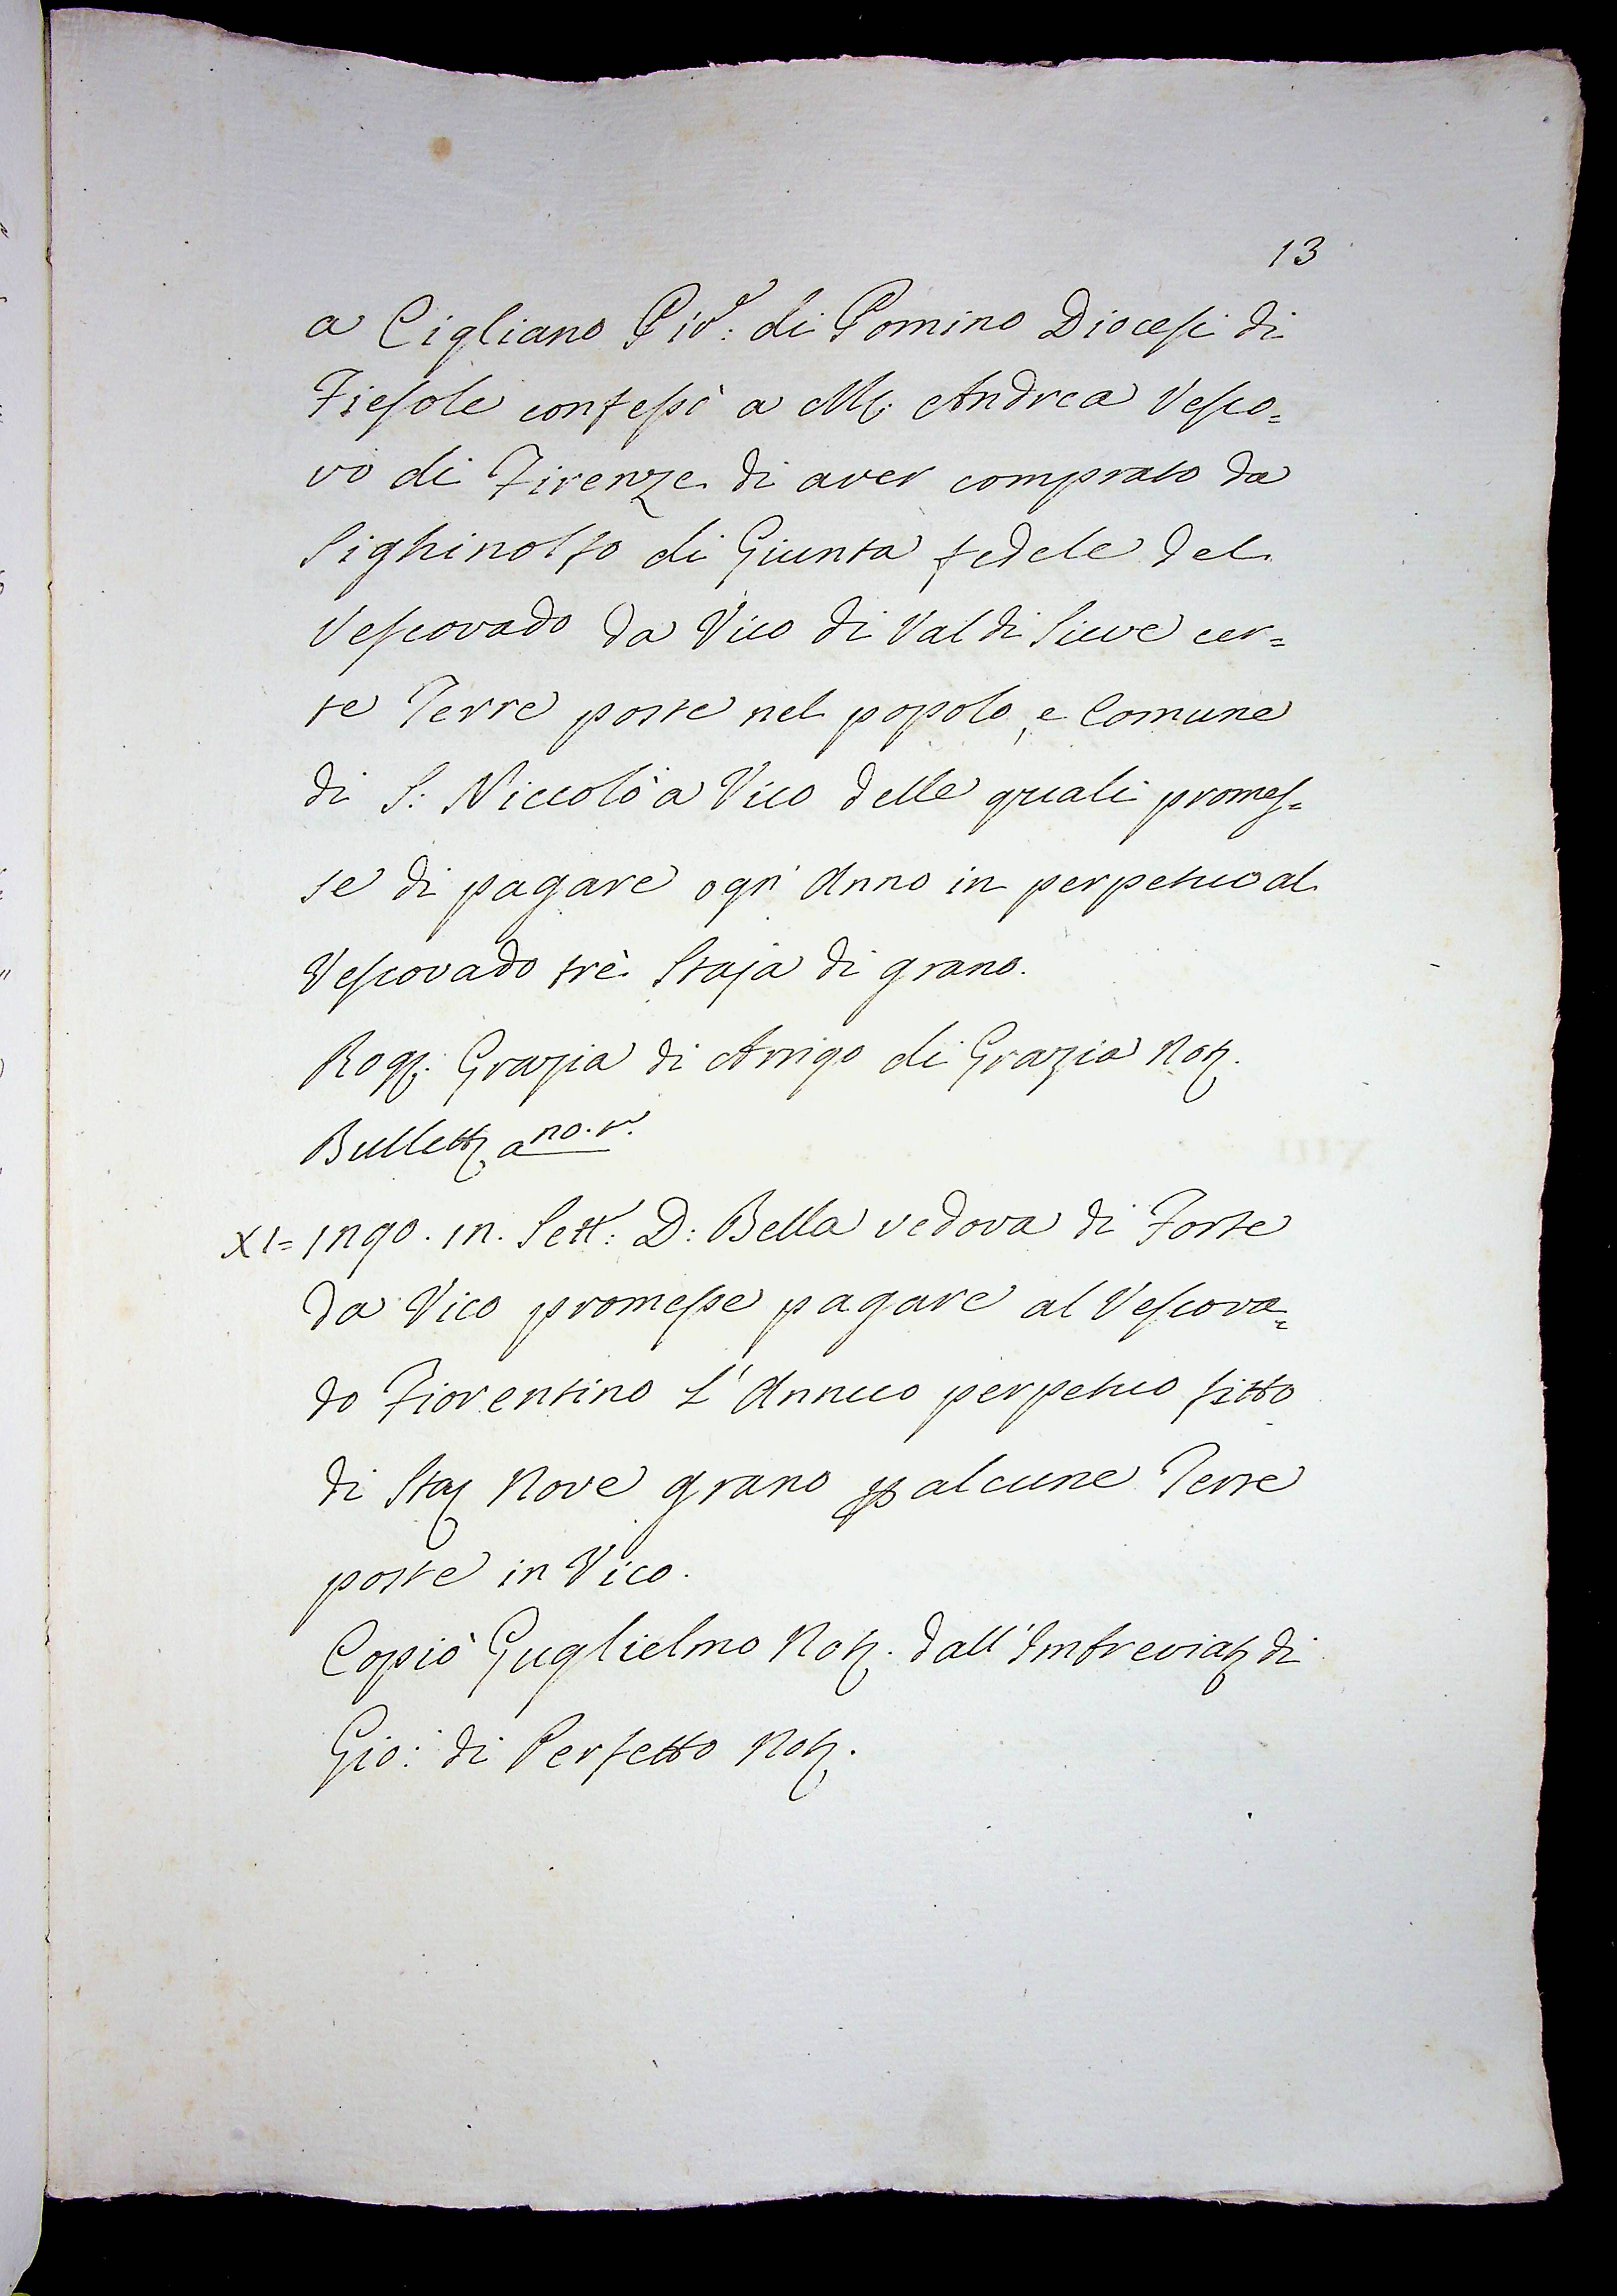 13
a Cigliano Piv: di Pomino Diocesi di
Fiesole confessò a M. Andrea Vesco=
vo di Firenze di aver comprato da
Sighinolfo di Giunta fedele del
Vescovado da Vico di Val di Sieve cer=
te Terre poste nel popolo, e Comune
di S: Niccolò a Vico delle quali promes=
se di pagare ogn' Anno in perpetuo al
Vescovado trè Staja di grano.
Rog. Grazia di Arrigo di Grazia Not.
Bullett. a no. v.
XI= 1290. in. Sett: D: Bella vedova di Forte
da Vico promesse pagare al Vescova=
do Fiorentino l'Annuo perpetuo fitto
di Sta. Nove grano p alcune Terre
poste in Vico.
Copiò Guglielmo Not. dall'Imbreviat. di
Gio: di Perfetto Not.